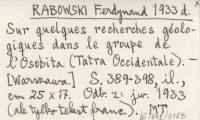 RABOWSKI Ferdynand 1933 d.
Sur quelques recherches géolo-
giques dans le groupe de
l'Osobita (Tatra Occidentale). -
[Warszawa]. S. 389-398, il.,
cm 25 x 17. Odb. z: jw. 1933
(ale tylko tekst franc.). MT